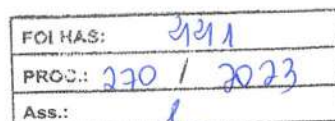 FOLHAS: 441
PROC.: 270 / 2023
Ass.: